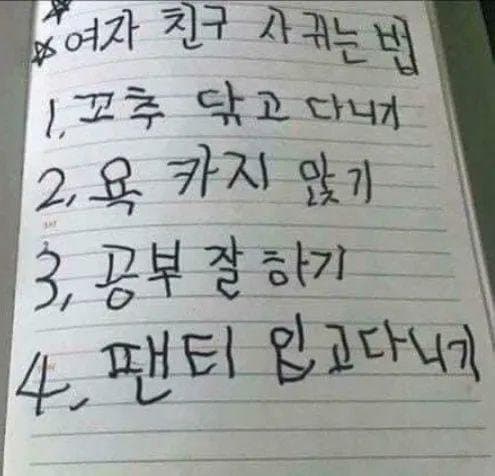 ☆☆여자 친구 사귀는 법
1. 꼬추 닦고 다니기
2. 욕 카지 않기
3. 공부 잘 하기
4. 팬티 입고다니기